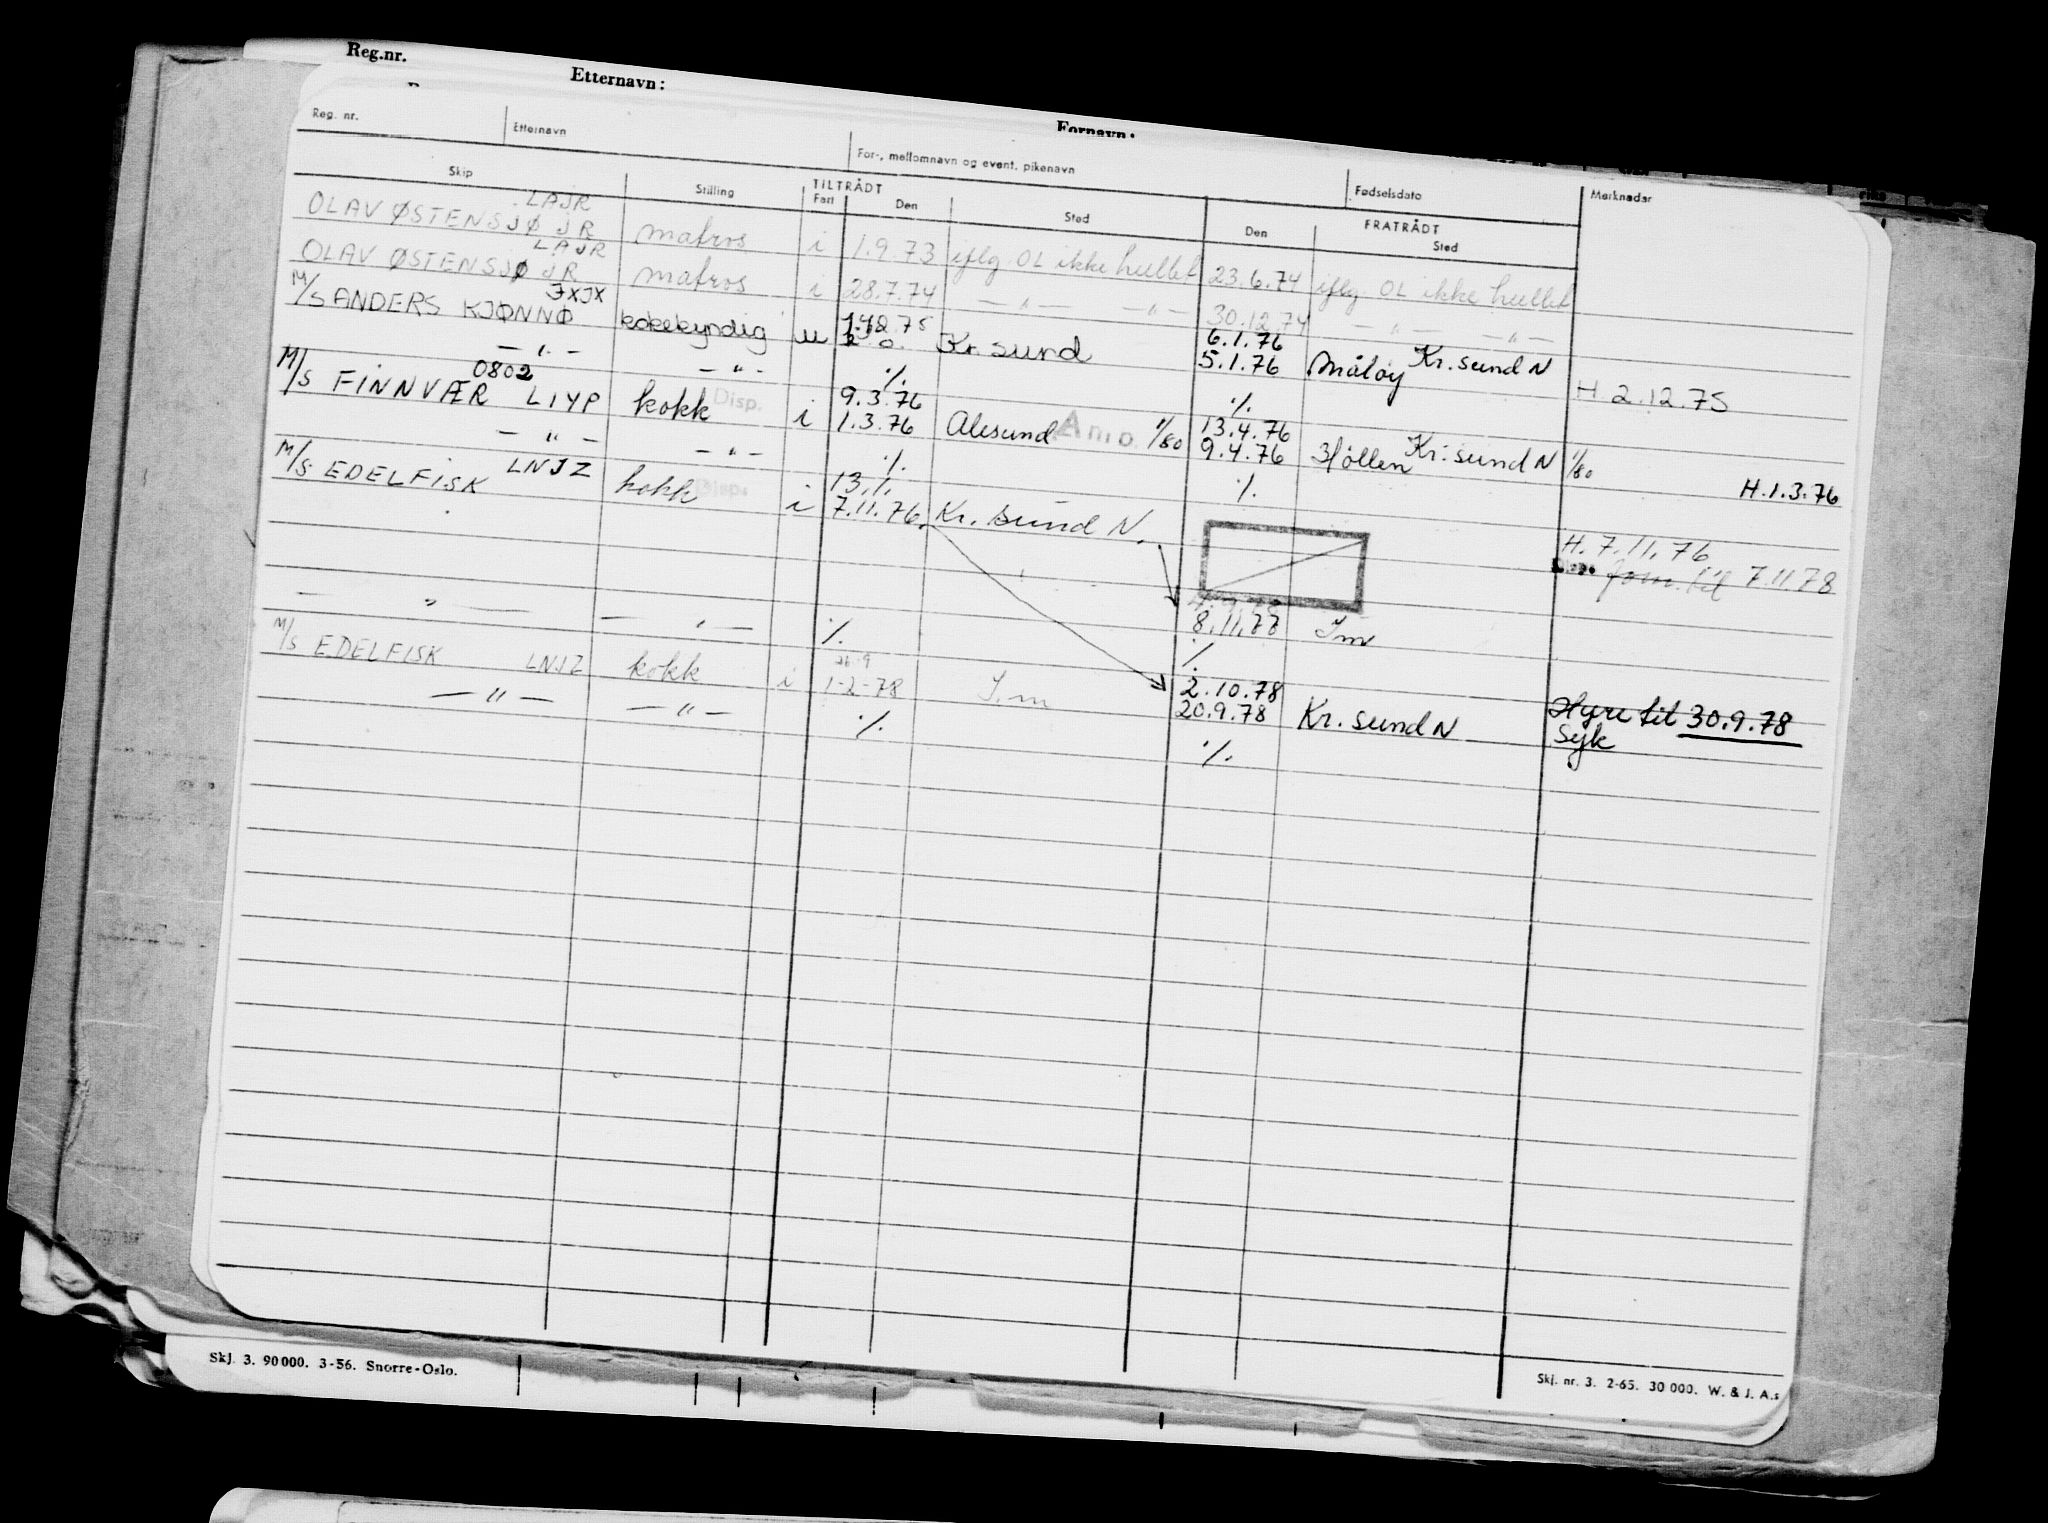 Reg.nr. Etternavn: Fornavn:
Reg. nr. Etternavn For-, mellomnavn og event. pikenavn Fødselsdato Merknader
Skip Stilling TILTRÅDT FRATRÅDT
Fart Den Sted Den Sted
LAJR
OLAV ØSTENSJØ JR matros i 1.9.73 iflg. OL ikke hullet 23.6.74 iflg. OL ikke hullet
LAJR
OLAV ØSTENSJØ JR matros i 28.7.74 — " — — " — 30.12.74 — " — — " —
JXJX 6.1.76 Kr.sund N
M/S ANDERS KJØNNØ kokekyndig u Kr. sund 5.1.76 Måløy H 2.12.75
— " — — " — ./. ./.
0802 Disp. 9.3.76 13.4.76 Kr.sund N
M/S FINNVÆR LIYP kokk i 1.3.76 Ålesund Amp. 1/80 9.4.76 1/80 H.1.3.76
— " — — " — ./. ./.
LNJZ Disp. 13./.
M/S EDELFISK kokk i 7.11.76. Kr. sund N. H. 7.11.76
fom. til 7.11.78
— " — — " — ./. 8.11.77 Im
./.
26.9 2.10.78
M/S EDELFISK LNJZ kokk i 1-2-78 I.m 20.9.78 Kr. sund N Hyre til 30.9.78
Syk
— " — — " — ./. ./.
Skj. 3. 90000. 3-56. Snorre-Oslo.
Skj. nr. 3. 2-65. 30 000. W. & J. A.s